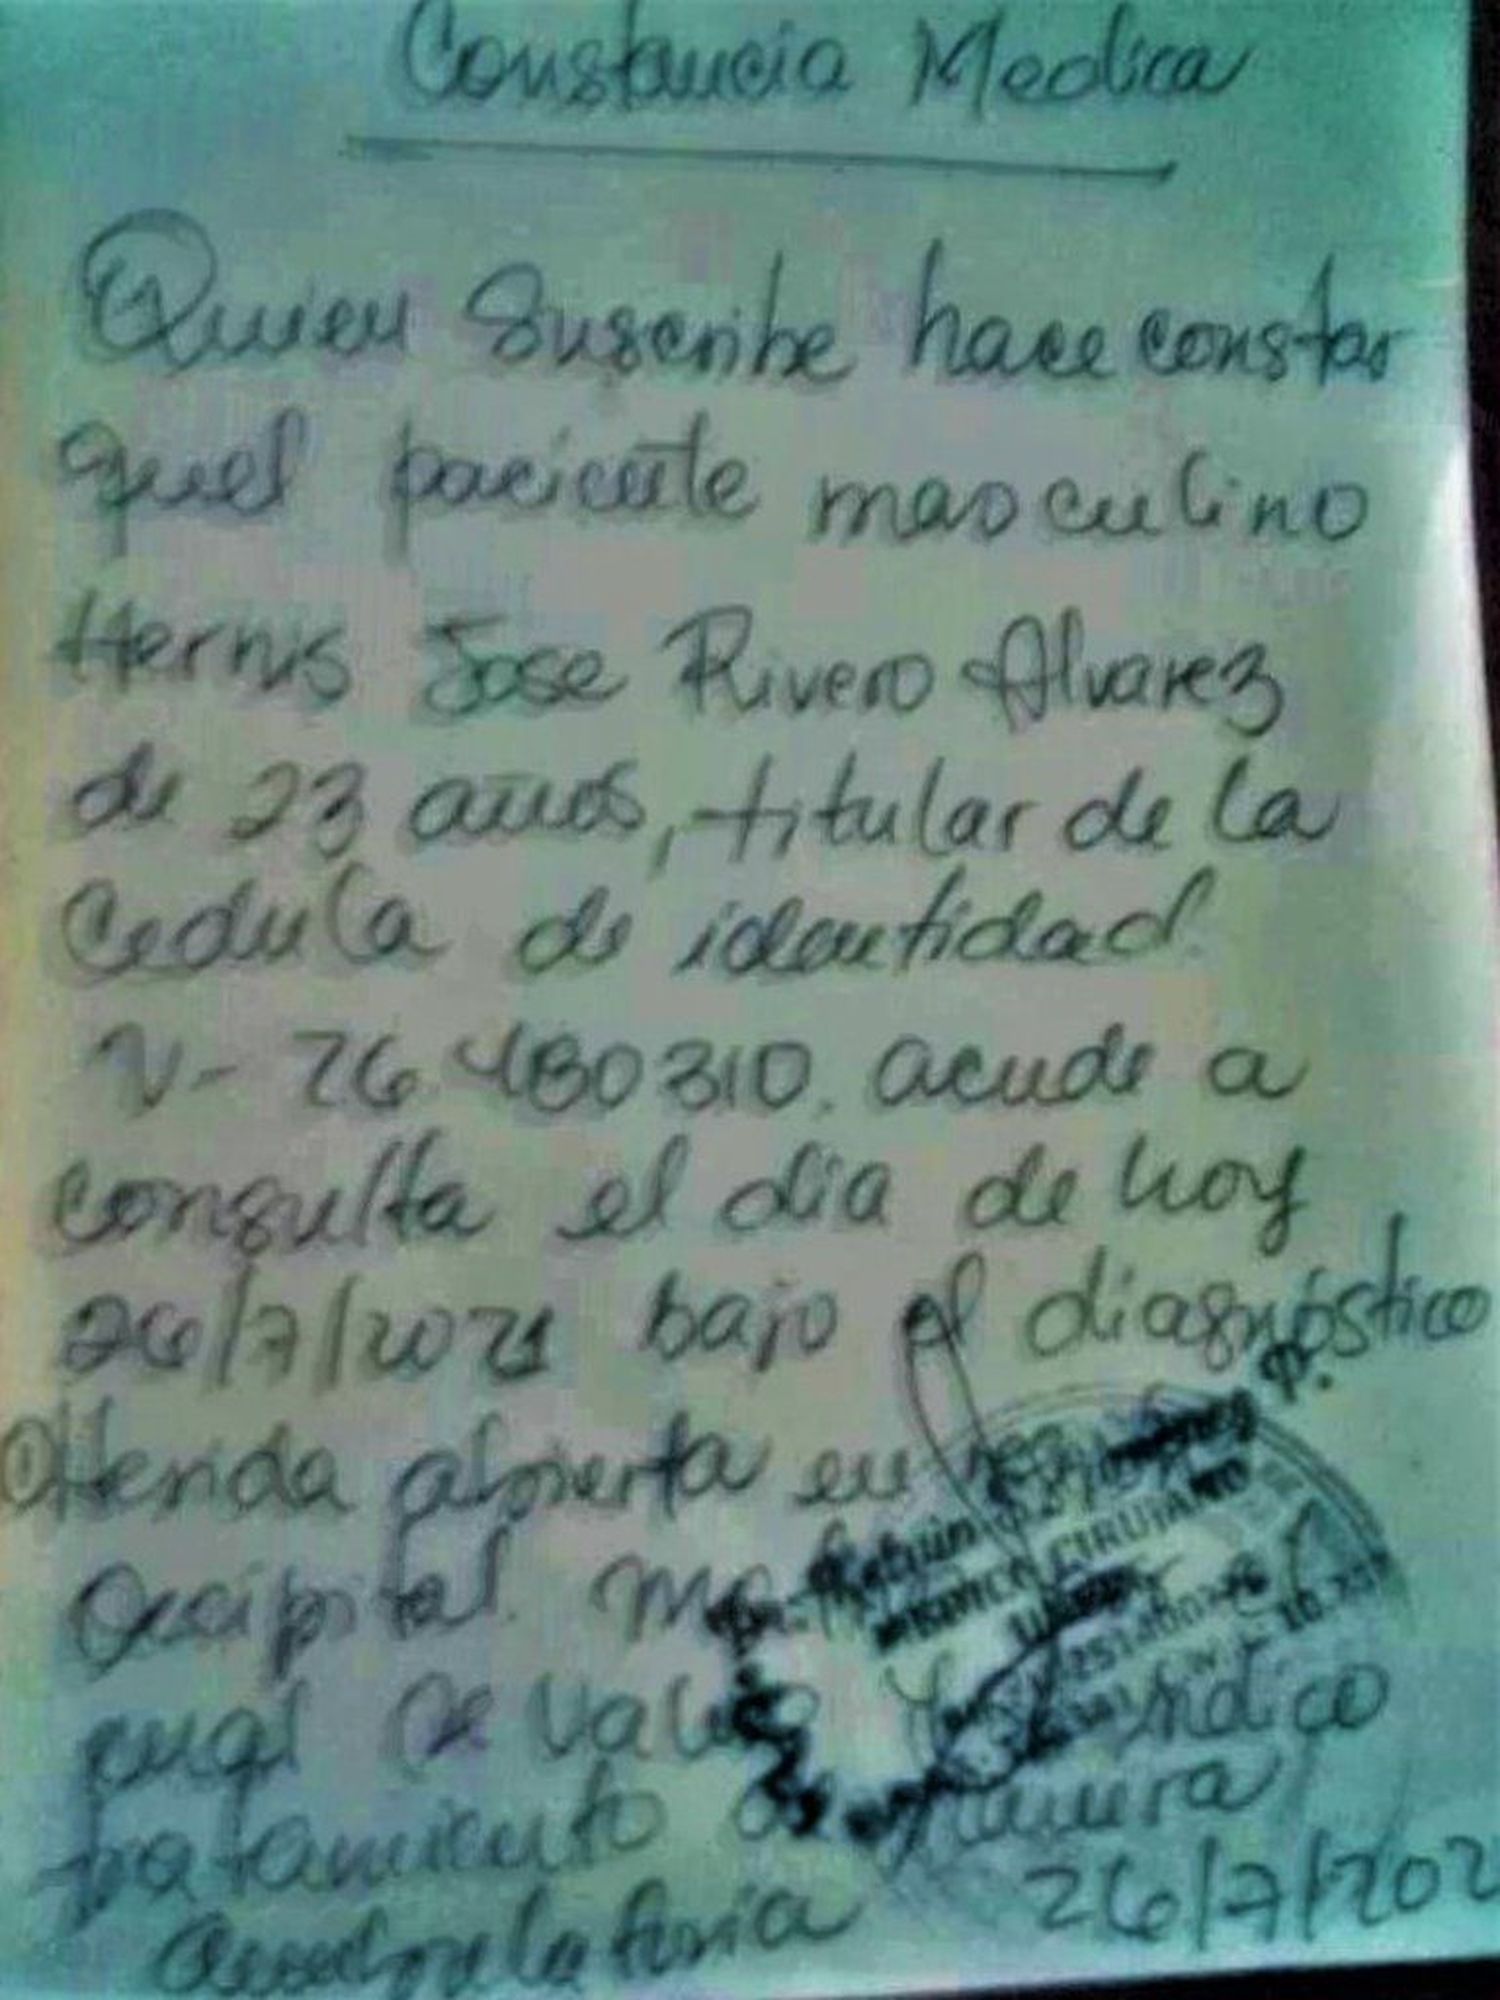 Constancia Medica
Quien Suscribe hace constar
quel paciente masculino
Hernis Jose Rivero Alvarez
de 23 años, titular de la
Cedula de identidad
V- 26 480310. acude a
consulta el dia de hoy
26/7/2021 bajo el diagnóstico
Herida abierta en
Occipital.
cual se
CIRUJANO
tratamiento
26/7/202